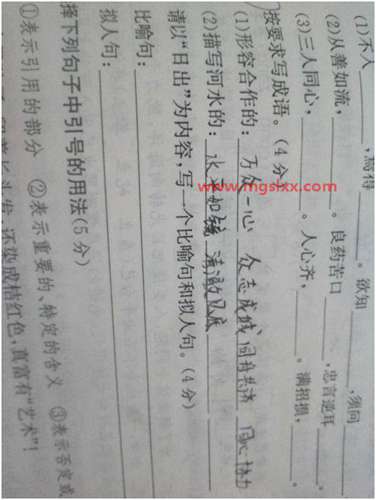 (1)不入______,焉得______。欲知______,须问______
(2)从善如流,______。良药苦口______,忠言逆耳______。
(3)三人同心,______。人心齐,______。满招损,______。
按要求写成语。(4分)
(1)形容合作的:万众一心 众志成城 同舟共济 同心协力
(2)描写河水的:水平如镜 清澈见底
请以“日出”为内容,写一个比喻句和拟人句。(4分)
比喻句:
拟人句:
择下列句子中引号的用法(5分)
①表示引用的部分 ②表示重要的、特定的含义 ③表示否定或
着长头发,还染成桔红色,真富有“艺术”!
www.mgslxx.com